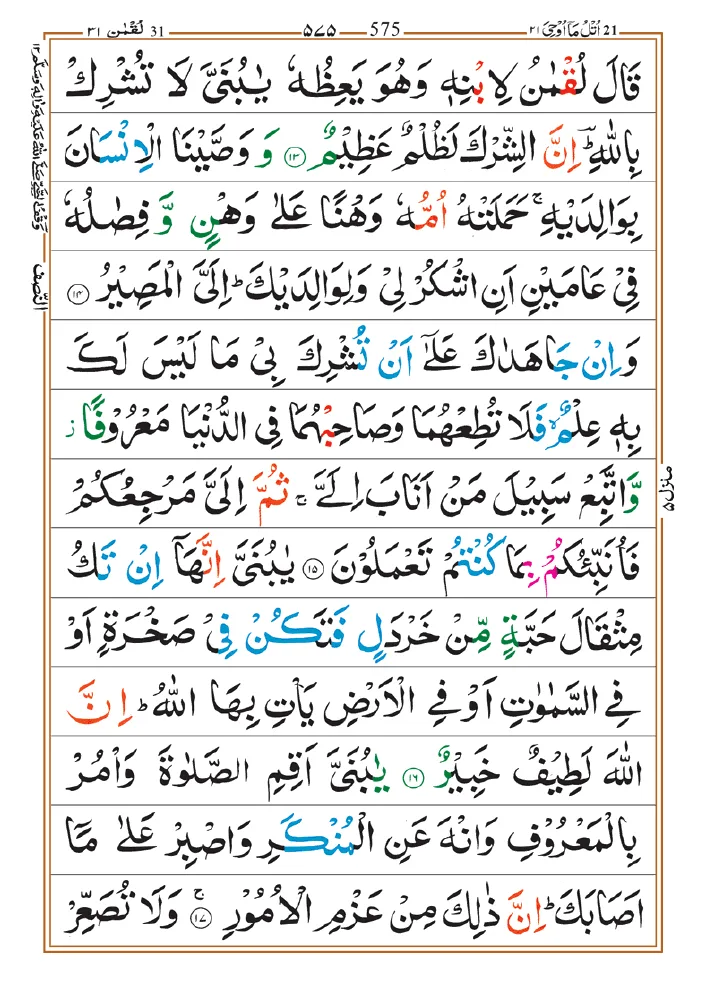 21 اُتْلُ مَاۤ اُوْحِیَ ۲۱ 575 ۵۷۵ 31 لُقْمٰن ۳۱
قَالَ لُقْمٰنُ لِابْنِهٖ وَهُوَ يَعِظُهٗ يٰبُنَیَّ لَا تُشْرِكْ
بِاللّٰهِؔؕ اِنَّ الشِّرْكَ لَظُلْمٌ عَظِيْمٌ ۝۱۳ وَ وَصَّيْنَا الْاِنْسَانَ
بِوَالِدَيْهِۚ حَمَلَتْهُ اُمُّهٗ وَهْنًا عَلٰى وَهْنٍ وَّ فِصٰلُهٗ
فِیْ عَامَيْنِ اَنِ اشْكُرْ لِیْ وَلِوَالِدَيْكَؕ اِلَیَّ الْمَصِيْرُ ۝۱۴
وَاِنْ جَاهَدٰكَ عَلٰۤى اَنْ تُشْرِكَ بِیْ مَا لَيْسَ لَكَ
بِهٖ عِلْمٌ فَلَا تُطِعْهُمَا وَصَاحِبْهُمَا فِی الدُّنْيَا مَعْرُوْفًا ز
وَّاتَّبِعْ سَبِيْلَ مَنْ اَنَابَ اِلَیَّۚ ثُمَّ اِلَیَّ مَرْجِعُكُمْ
فَاُنَبِّئُكُمْ بِمَا كُنْتُمْ تَعْمَلُوْنَ ۝۱۵ يٰبُنَیَّ اِنَّهَاۤ اِنْ تَكُ
مِثْقَالَ حَبَّةٍ مِّنْ خَرْدَلٍ فَتَكُنْ فِیْ صَخْرَةٍ اَوْ
فِی السَّمٰوٰتِ اَوْ فِی الْاَرْضِ يَاْتِ بِهَا اللّٰهُؕ اِنَّ
اللّٰهَ لَطِيْفٌ خَبِيْرٌ ۝۱۶ يٰبُنَیَّ اَقِمِ الصَّلٰوةَ وَاْمُرْ
بِالْمَعْرُوْفِ وَانْهَ عَنِ الْمُنْكَرِ وَاصْبِرْ عَلٰى مَاۤ
اَصَابَكَؕ اِنَّ ذٰلِكَ مِنْ عَزْمِ الْاُمُوْرِۚ ۝۱۷ وَلَا تُصَعِّرْ
وَقْفُ النَّبِیِّ صَلَّی اللّٰهُ عَلَيْهِ وَاٰلِهٖ وَسَلَّمَ ۱۲
النّصف
منزل ۵